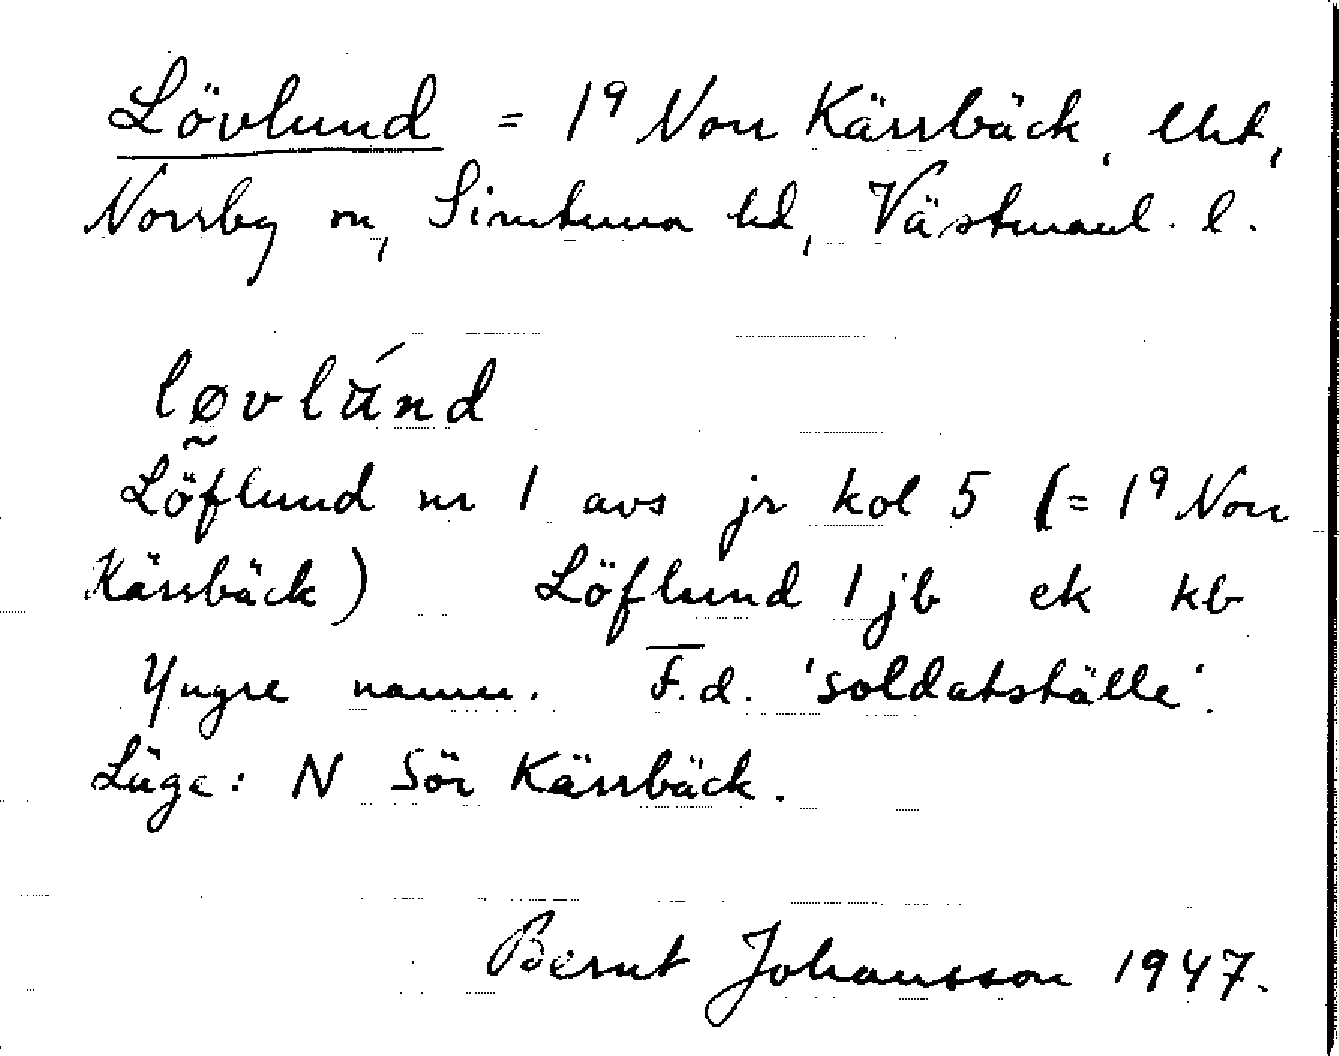 Lövlund = 1⁹ Norr Kärrbäck, lht,
Norrby sn, Simtuna hd, Västmanl. l.
løvlúnd
Löflund nr 1 avs jr kol 5 (= 1⁹ Norr
Kärrbäck) Löflund 1 jb ek kb
Yngre namn. F.d. 'soldatställe'.
Läge: N Sör Kärrbäck.
Bernt Johansson 1947.